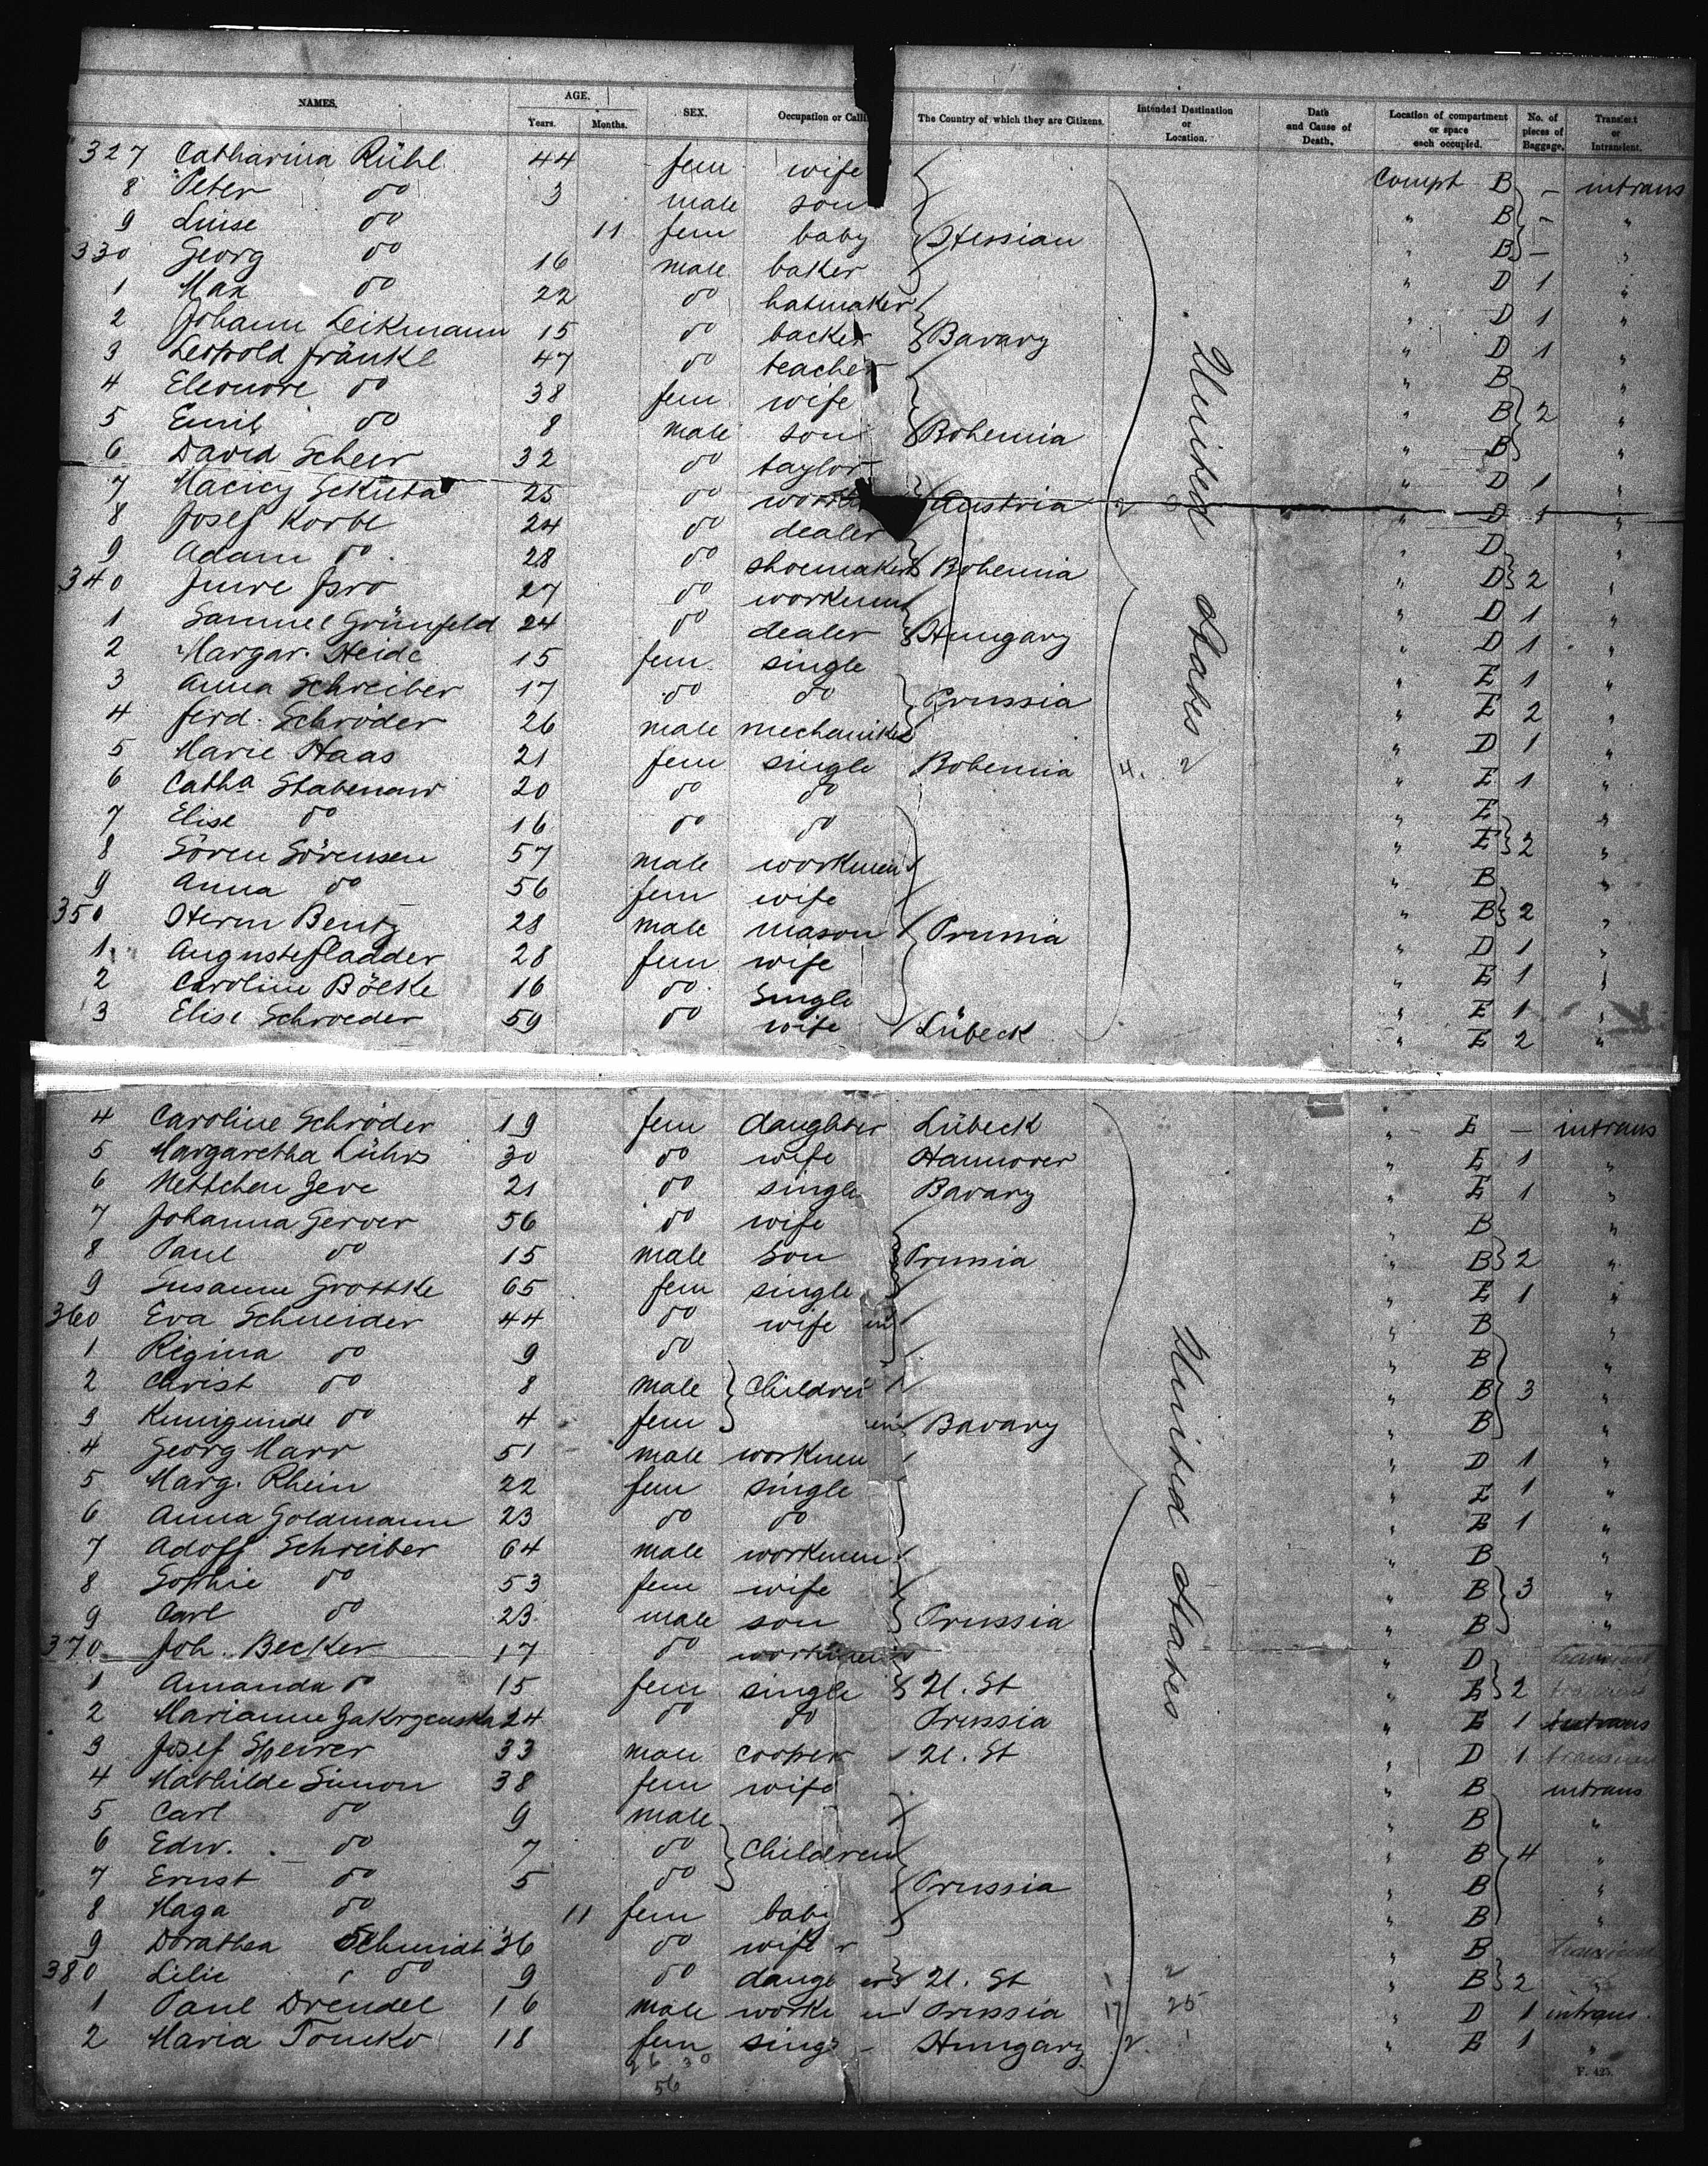 NAMES. AGE. Years. Months. SEX. Occupation or Calli The Country of which they are Citizens. Intended Destination or Location. Date and Cause of Death. Location of compartment or space each occupied. No. of pieces of Baggage. Transient or Intransient.
327 Catharina Rühl 44 fem wife Compt B - intrans
8 Peter do 3 male son " B - "
9 Luise do 11 fem baby Hessian " B - "
330 Georg do 16 male baker " D 1 "
1 Max do 22 do hatmaker " D 1 "
2 Johann Leikmann 15 do backer Bavary " D 1 "
3 Leopold Fränkl 47 do teacher " B "
4 Eleonore do 38 fem wife " B 2 "
5 Emil do 8 male son Bohemia " B "
6 David Scheer 32 do taylor " D 1 "
7 25 do Austria " D 1 "
8 Josef Korbl 24 do dealer " D "
9 Adam do 28 do shoemaker Bohemia " D 2 "
340 27 do workmen " D 1 "
1 Samuel Grünfeld 24 do dealer Hungary " D 1 "
2 Margar. Heide 15 fem. single " E 1 "
3 Anna Schreiber 17 do do Prussia " E 2 "
4 Ferd. Schröder 26 male mechaniker " D 1 "
5 Marie Haas 21 fem single Bohemia 4. 2 " E 1 "
6 Catha Stabenaw 20 do do " E "
7 Elise do 16 do do " E 2 "
8 Sören Sörensen 57 male workmen " B "
9 Anna do 56 fem wife " B 2 "
350 Herm Bentz 28 male mason Prussia " D 1 "
1 Auguste Fladder 28 fem wife " E 1 "
2 Caroline Bölke 16 do single " E 1 "
3 Elise Schroeder 59 do wife Lübeck " E 2 "
United States
4 Caroline Schröder 19 fem daughter Lübeck " E - intrans
5 Margaretha Lührs 30 do wife Hannover " E 1 "
6 Nettchen Zeve 21 do single Bavary " E 1 "
7 Johanna Gerver 56 do wife " B "
8 Paul do 15 male son Prussia " B 2 "
9 Susanne Grottke 65 fem single " E 1 "
360 Eva Schneider 44 do wife " B "
1 Regina do 9 do " B "
2 Christ do 8 male Children " B 3 "
3 Kunigunde do 4 fem Bavary " B "
4 Georg Marr 51 male workmen " D 1 "
5 Marg. Rhein 22 fem single " E 1 "
6 Anna Goldmann 23 do do " E 1 "
7 Adolf Schreiber 64 male workmen " B "
8 Sophie do 53 fem wife " B 3 "
9 Carl do 23 male son Prussia " B "
370 Joh. Becker 17 do workmen " D transient
1 Amanda do 15 fem single U. St " E 2 transient
2 Marianne Zakrzenska 24 do do Prussia " E 1 intrans
3 Josef Speirer 33 male cooper U. St " D 1 transient
4 Mathilde Simon 38 fem wife " B intrans
5 Carl do 9 male " B "
6 Edw. do 7 do Children " B 4 "
7 Ernst do 5 do Prussia " B "
8 Haga do 11 fem baby " B "
9 Dorathea Schmidt 36 do wife " B transient
380 Lilie do 9 do daugh er U. St 2 " B 2 "
1 Paul Drendel 16 male worke n Prussia 17 25 " D 1 intrans.
2 Maria Tomko 18 fem sing Hungary 2. 1 " E 1 "
United States
26 30
56
F. 425.